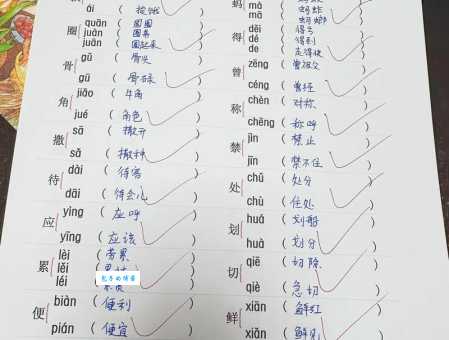 ái ( 挨饿 )
圈 quān ( 圆圈 )
juàn ( )
juān ( 圈起来 )
骨 gǔ ( 骨头 )
gū ( )
角 jiǎo ( 牛角 )
jué ( 角色 )
撒 sā ( 撒开 )
sǎ ( 撒种 )
待 dài ( 待客 )
dāi ( 待会儿 )
应 yìng ( 应呼 )
yīng ( 应该 )
累 lèi ( 劳累 )
lěi
léi
便 biàn ( 便利 )
pián ( 便宜 )
蚂
mà ( 蚂蚱 )
mā ( 蚂螂 )
得 děi (
dé ( 得到 )
de ( 走得快 )
曾 zēng ( 曾祖父 )
céng ( 曾经 )
称 chèn ( 对称 )
chēng ( 称呼 )
禁 jìn ( 禁止 )
jīn ( 禁不住 )
处 chǔ ( 处分 )
chù ( 住处 )
划 huá ( 划船 )
huà ( 划分 )
切 qiē ( 切除 )
qiè ( 急切 )
鲜 xiān ( 鲜红 )
xiǎn (